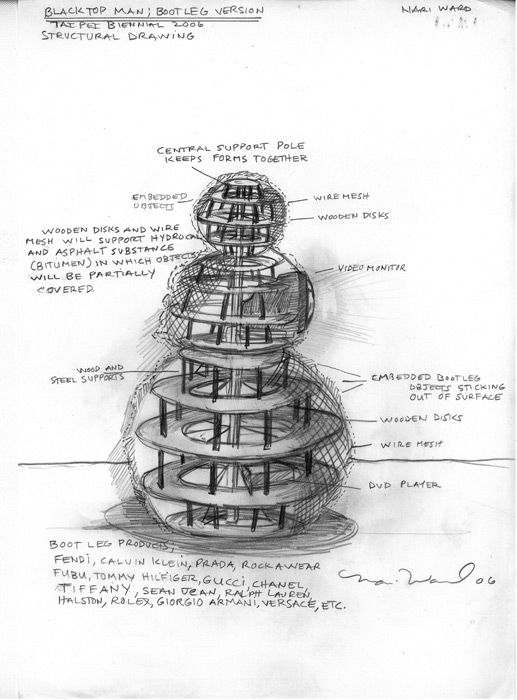 BLACKTOP MAN; BOOTLEG VERSION
TAIPEI BIENNIAL 2006
STRUCTURAL DRAWING
NARI WARD
CENTRAL SUPPORT POLE
KEEPS FORMS TOGETHER
EMBEDDED
OBJECTS
WIRE MESH
WOODEN DISKS
WOODEN DISKS AND WIRE
MESH WILL SUPPORT HYDROCAL
AND ASPHALT SUBSTANCE
(BITUMEN) IN WHICH OBJECTS
WILL BE PARTIALLY
COVERED.
VIDEO MONITOR
WOOD AND
STEEL SUPPORTS
EMBEDDED BOOTLEG
OBJECTS STICKING
OUT OF SURFACE
WOODEN DISKS
WIRE MESH
DVD PLAYER
BOOT LEG PRODUCTS;
FENDI, CALVIN KLEIN, PRADA, ROCKAWEAR
FUBU, TOMMY HILFIGER, GUCCI, CHANEL,
TIFFANY, SEAN JEAN, RALPH LAUREN,
HALSTON, ROLEX, GIORGIO ARMANI, VERSACE, ETC.
Nari Ward 06